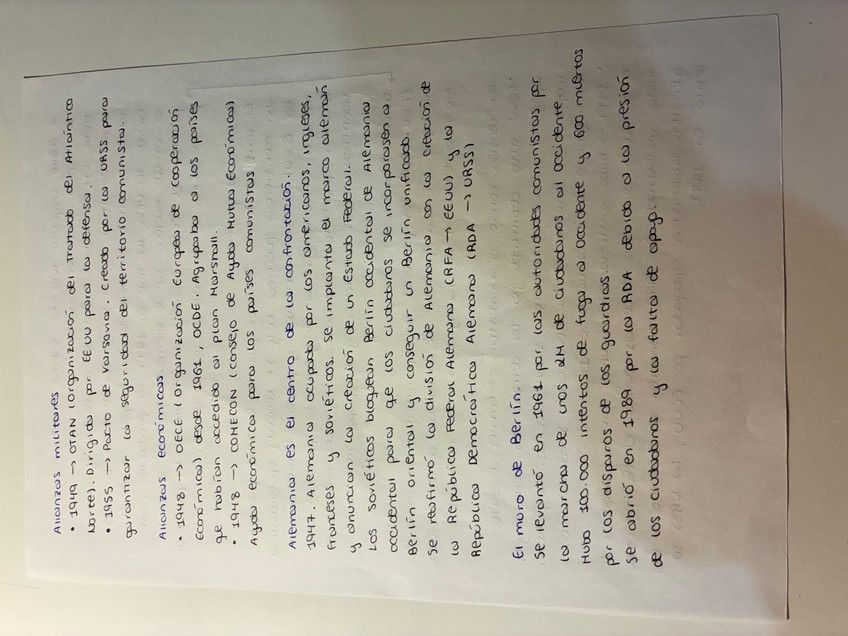 Alianzas militares
• 1949 → OTAN (Organización del Tratado del Atlántico
Norte). Dirigida por EEUU para la defensa.
• 1955 → Pacto de Varsovia. Creado por la URSS para
garantizar la seguridad del territorio comunista.
Alianzas Económicas
• 1948 → OECE (Organización Europea de Cooperación
Económica) desde 1961, OCDE. Agrupaba a los países
que habían accedido al plan Marshall.
• 1948 → COMECON (Consejo de Ayuda Mutua Económica)
Ayuda económica para los países comunistas
Alemania es el centro de la confrontación.
1947. Alemania ocupada por los americanos, ingleses,
franceses y soviéticos. Se implanta el marco alemán
y anuncian la creación de un Estado Federal.
Los soviéticos bloquean Berlín occidental de Alemania
occidental para que los ciudadanos se incorporasen a
Berlín oriental y conseguir un Berlín unificado.
Se reafirmó la división de Alemania con la creación de
la República Federal Alemana (RFA → EEUU) y la
República Democrática Alemana (RDA → URSS)
El muro de Berlín.
Se levantó en 1961 por las autoridades comunistas por
la marcha de unos 2M de ciudadanos al occidente.
Hubo 100.000 intentos de fuga a occidente y 600 muertos
por los disparos de los guardias.
Se abrió en 1989 por la RDA debido a la presión
de los ciudadanos y la falta de apoyo.